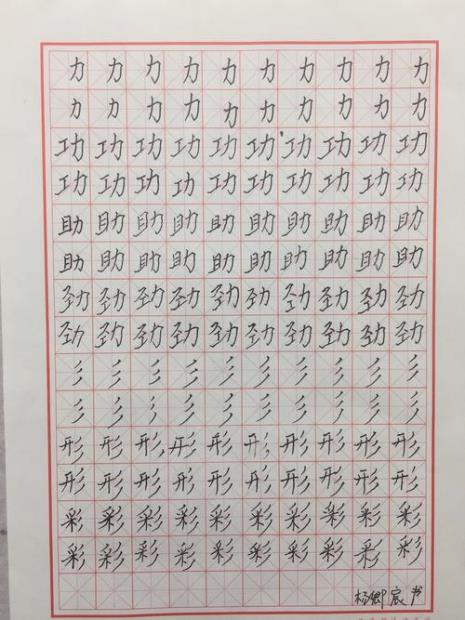 力力力力力力力力力力
力力力力力力力力力力
功功功功功功功功功功
功功功功功功功功功功
助助助助助助助助助助
助助助助助助助助助助
劲劲劲劲劲劲劲劲劲劲
劲劲劲劲劲劲劲劲劲劲
彡彡彡彡彡彡彡彡彡彡
彡彡彡彡彡彡彡彡彡彡
形形形形形形形形形形
形形形形形形形形形形
彩彩彩彩彩彩彩彩彩彩
彩彩彩彩彩彩彩彩彩彩
杨卿宸书